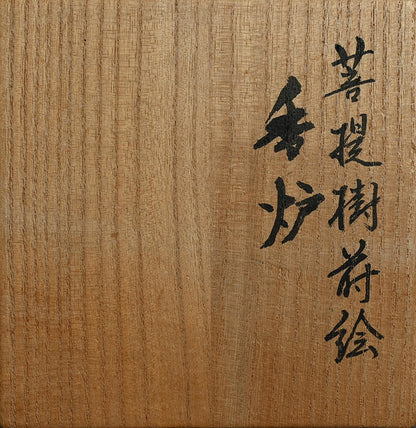 菩提樹蒔絵
香炉